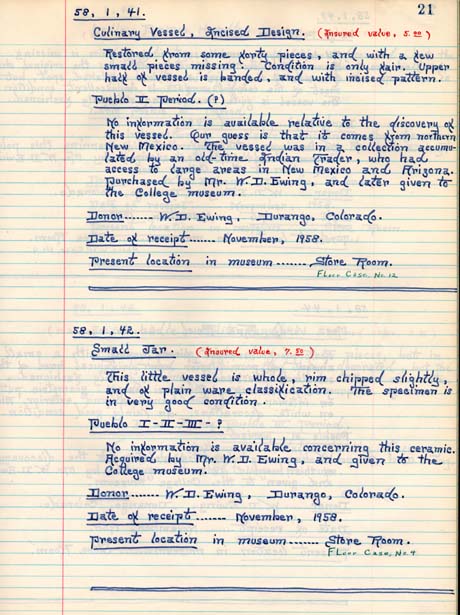 21
58, 1, 41.
Culinary Vessel, Incised Design. (Insured value, 5.00)
Restored from some forty pieces, and with a few
small pieces missing. Condition is only fair. Upper
half of vessel is banded, and with incised pattern.
Pueblo II Period. (?)
No information is available relative to the discovery of
this vessel. Our guess is that it comes from northern
New Mexico. The vessel was in a collection accumu-
lated by an old-time Indian Trader, who had
access to large areas in New Mexico and Arizona.
Purchased by Mr. W.D. Ewing, and later given to
the College museum.
Donor...... W.D. Ewing, Durango, Colorado.
Date of receipt...... November, 1958.
Present location in museum....... Store Room.
Floor Case, No. 12
58, 1, 42.
Small Jar. (Insured value, 7.50)
This little vessel is whole, rim chipped slightly,
and of plain ware classification. The specimen is
in very good condition.
Pueblo I-II-III-?
No information is available concerning this ceramic.
Acquired by Mr. W.D. Ewing, and given to the
College museum.
Donor....... W.D. Ewing, Durango, Colorado.
Date of receipt....... November, 1958.
Present location in museum....... Store Room.
Floor Case, No. 9